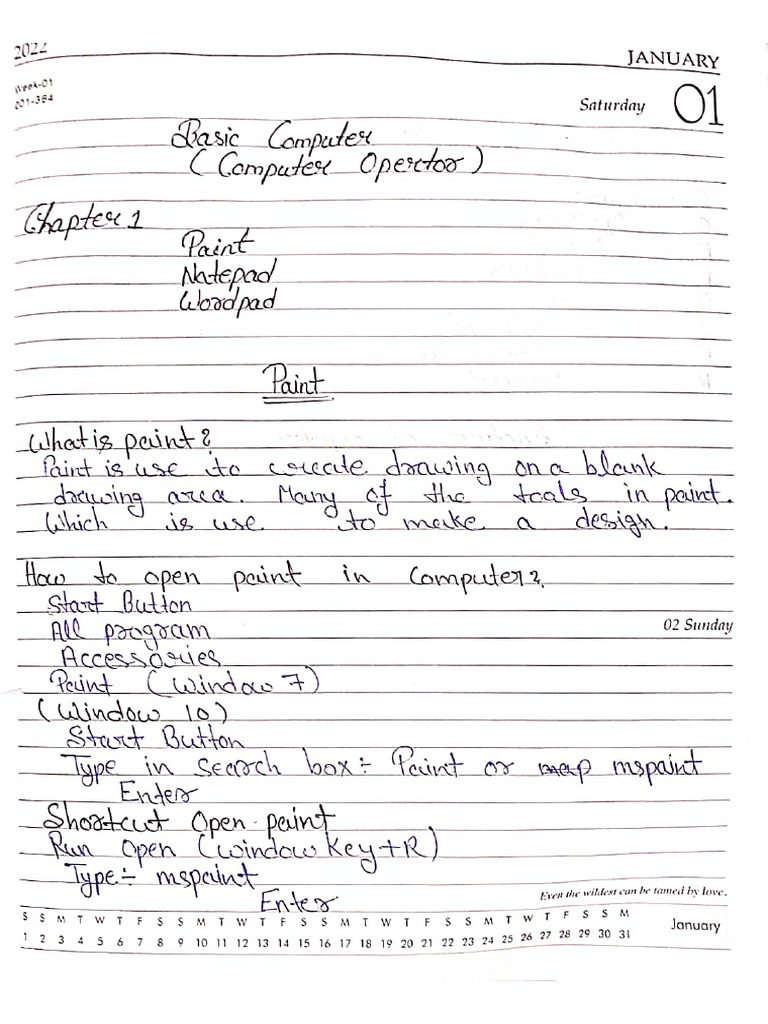 2022
JANUARY
Week-01
001-364
Saturday 01
Basic Computer
(Computer Opertor)
Chapter 1
Paint
Notepad
Wordpad
Paint
What is paint?
Paint is use to create drawing on a blank
drawing area. Many of the tools in paint.
Which is use to make a design.
How to open paint in Computer?
Start Button
02 Sunday
All program
Accessories
Paint (Window 7)
(Window 10)
Start Button
Type in search box:- Paint or mspaint
Enter
Shortcut Open paint
Run Open (Window Key+R)
Type:- mspaint
Even the wildest can be tamed by love.
Enter
S S M T W T F S S M T W T F S S M T W T F S S M T W T F S S M
1 2 3 4 5 6 7 8 9 10 11 12 13 14 15 16 17 18 19 20 21 22 23 24 25 26 27 28 29 30 31
January